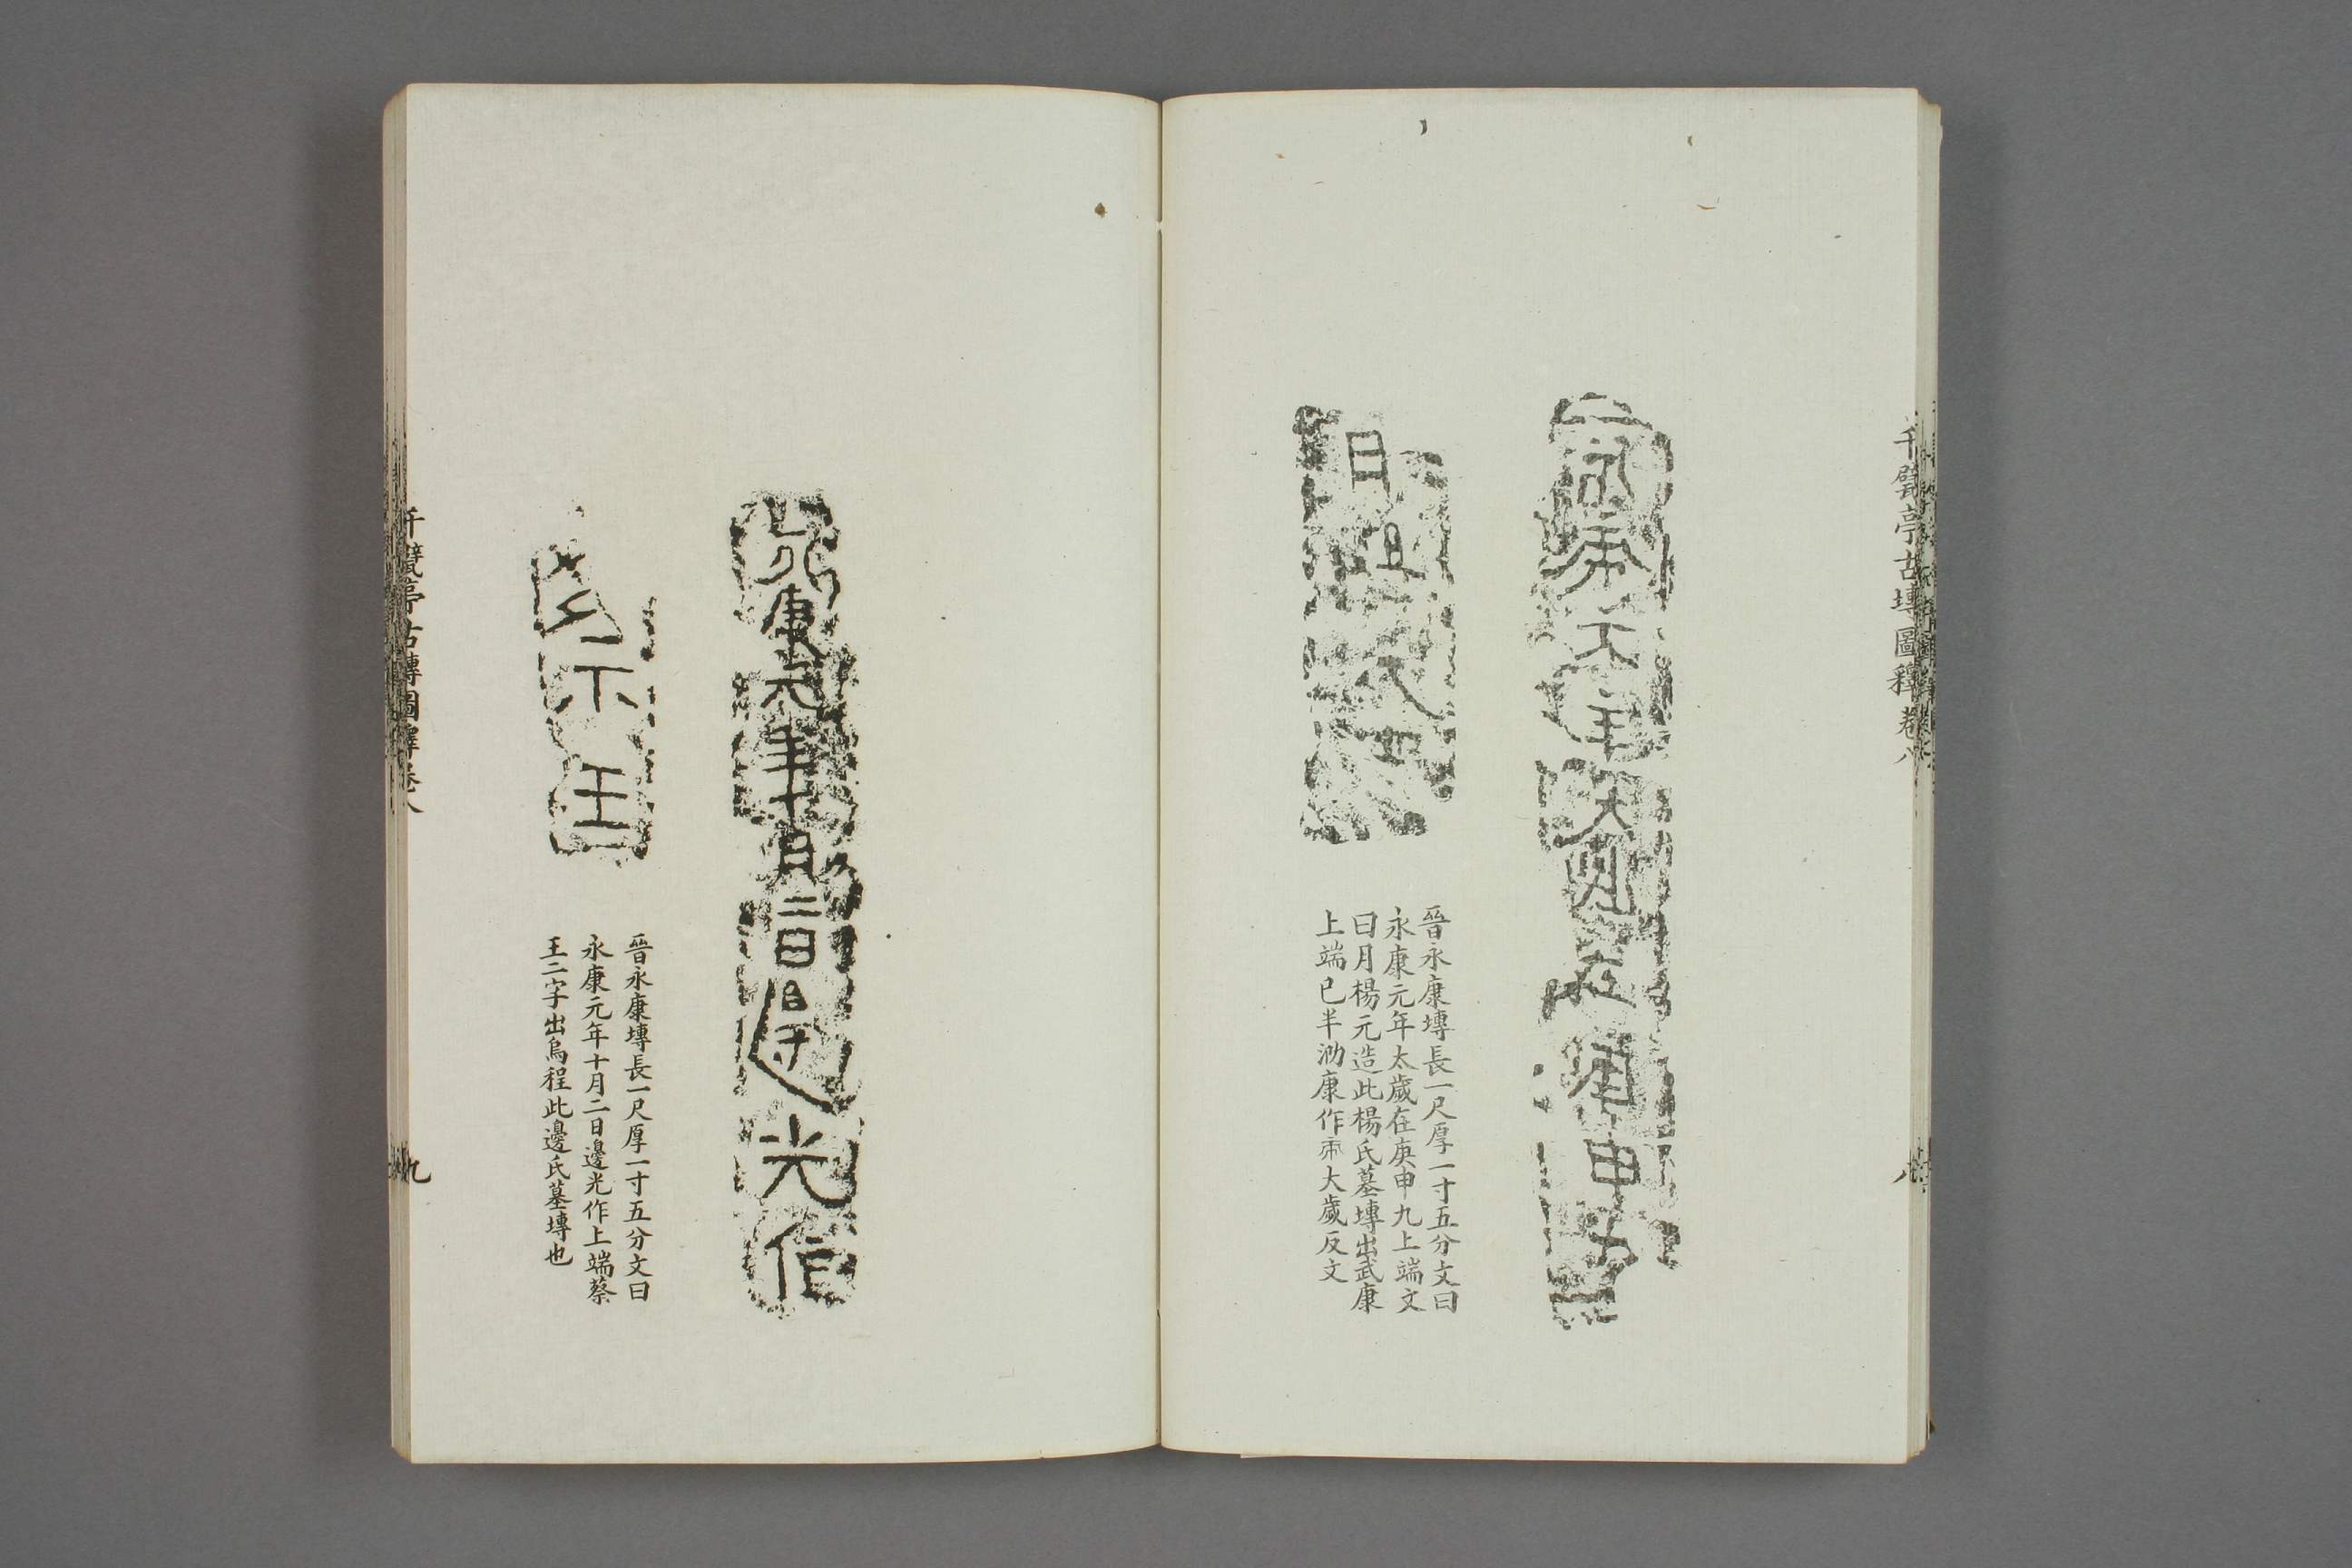 千甓亭古塼圖釋卷八
八
晉永康塼長一尺厚一寸五分文曰
永康元年太歲在庚申九上端文
曰月楊元造此楊氏墓塼出武康
上端已半泐康作𢊁大歲反文
永康元年十月二日邊光作
王
晉永康塼長一尺厚一寸五分文曰
永康元年十月二日邊光作上端蔡
王二字出烏程此邊氏墓塼也
千甓亭古塼圖釋卷八
九